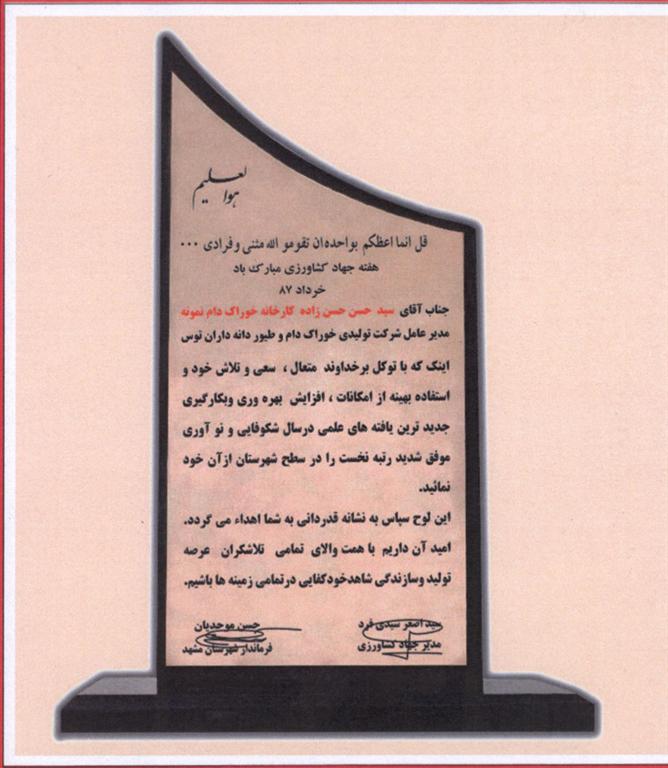 هوالعلیم
قل انما اعظکم بواحده ان تقومو الله مثنی و فرادی ...
هفته جهاد کشاورزی مبارک باد
خرداد ۸۷
جناب آقای سید حسن حسن زاده کارخانه خوراک دام نمونه
مدیر عامل شرکت تولیدی خوراک دام و طیور دانه داران توس
اینک که با توکل برخداوند متعال ، سعی و تلاش خود و
استفاده بهینه از امکانات ، افزایش بهره وری وبکارگیری
جدید ترین یافته های علمی درسال شکوفایی و نو آوری
موفق شدید رتبه نخست را در سطح شهرستان ازآن خود
نمائید.
این لوح سپاس به نشانه قدردانی به شما اهداء می گردد.
امید آن داریم با همت والای تمامی تلاشگران عرصه
تولید وسازندگی شاهدخودکفایی درتمامی زمینه ها باشیم.
سید اصغر سیدی فرد
مدیر جهاد کشاورزی
حسن موحدیان
فرماندار شهرستان مشهد